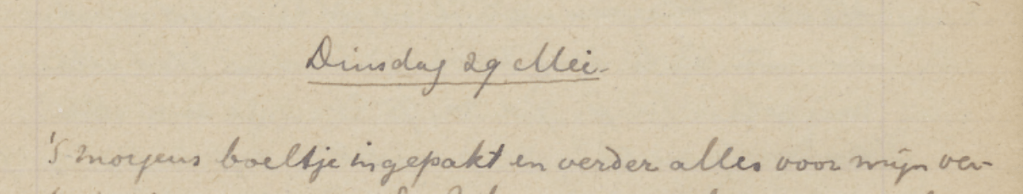 Dinsdag 29 Mei.
's morgens boeltje ingepakt en verder alles voor mijn ver-